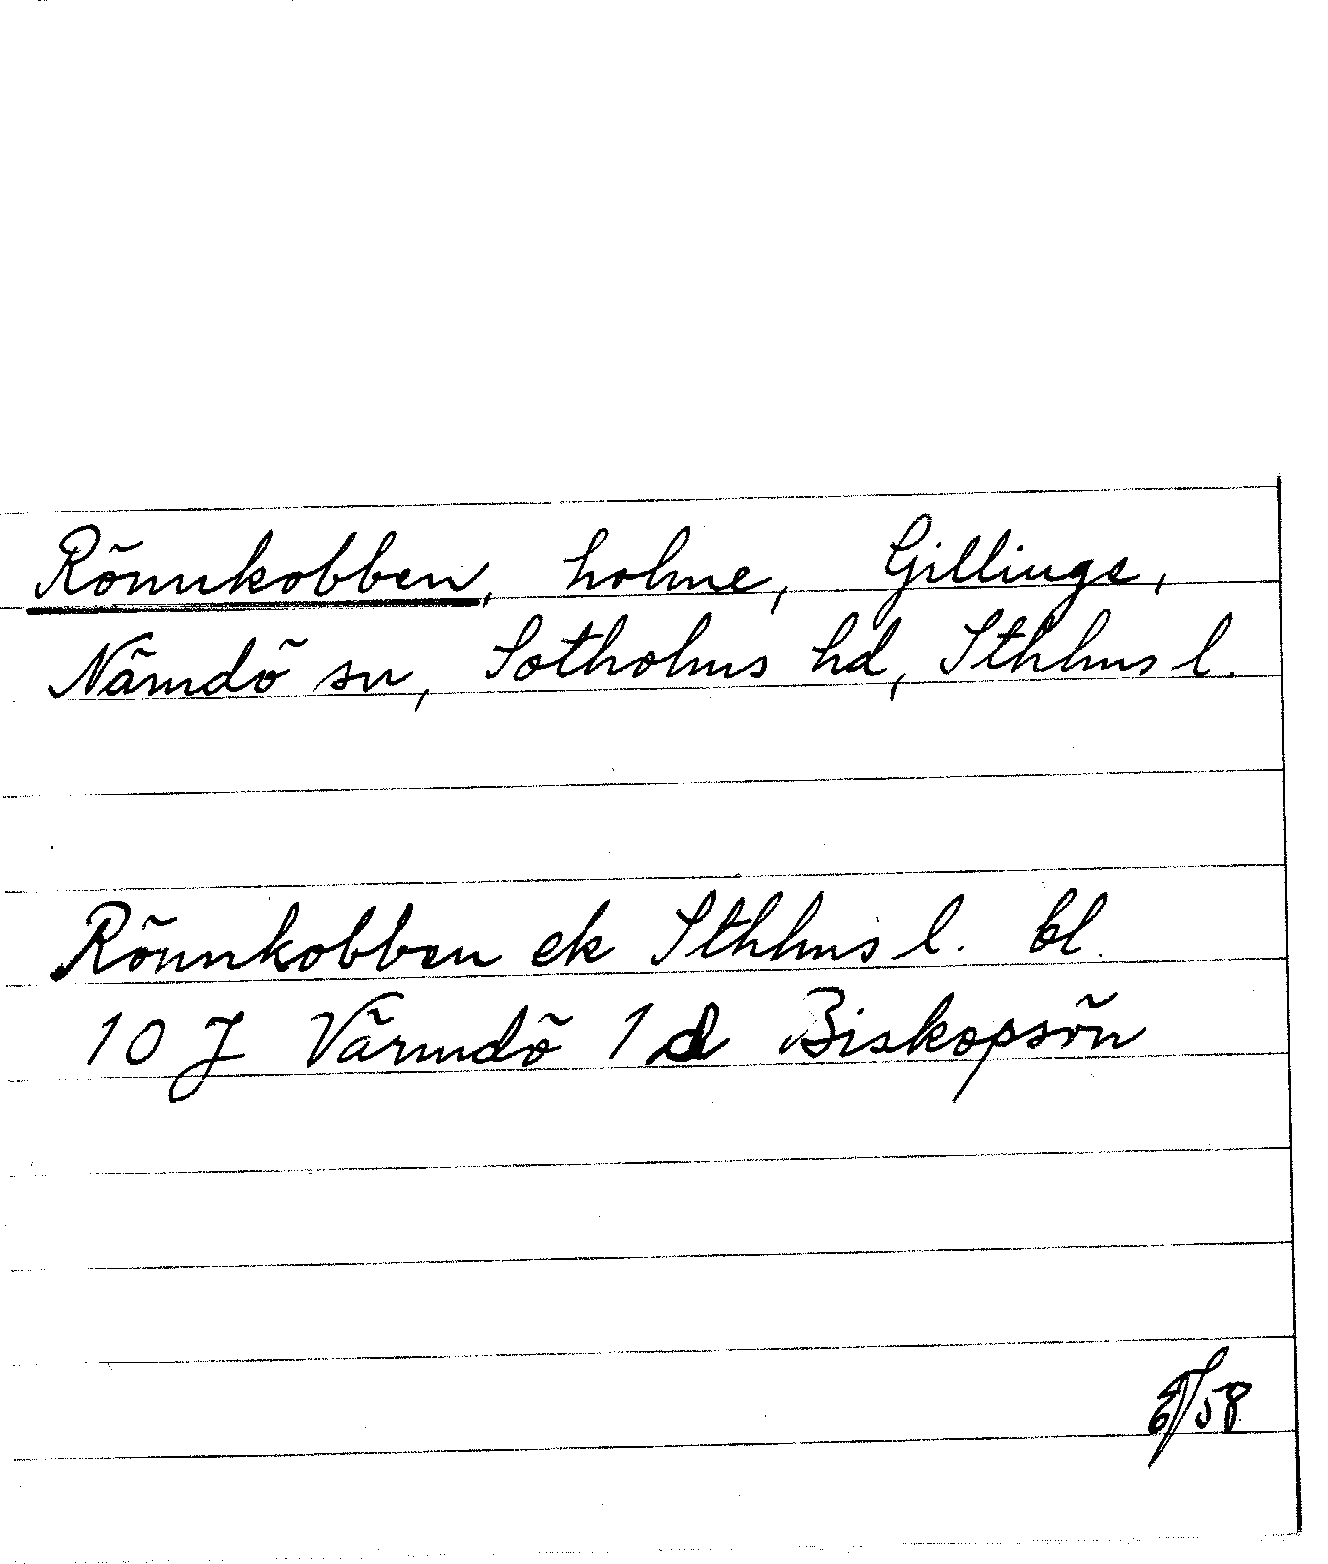 Rönnkobben, holme, Gillinge,
Nämdö sn, Sotholms hd, Sthlms l.
Rönnkobben ek Sthlms l. bl.
10 J Värmdö 1 d Biskopsön
58